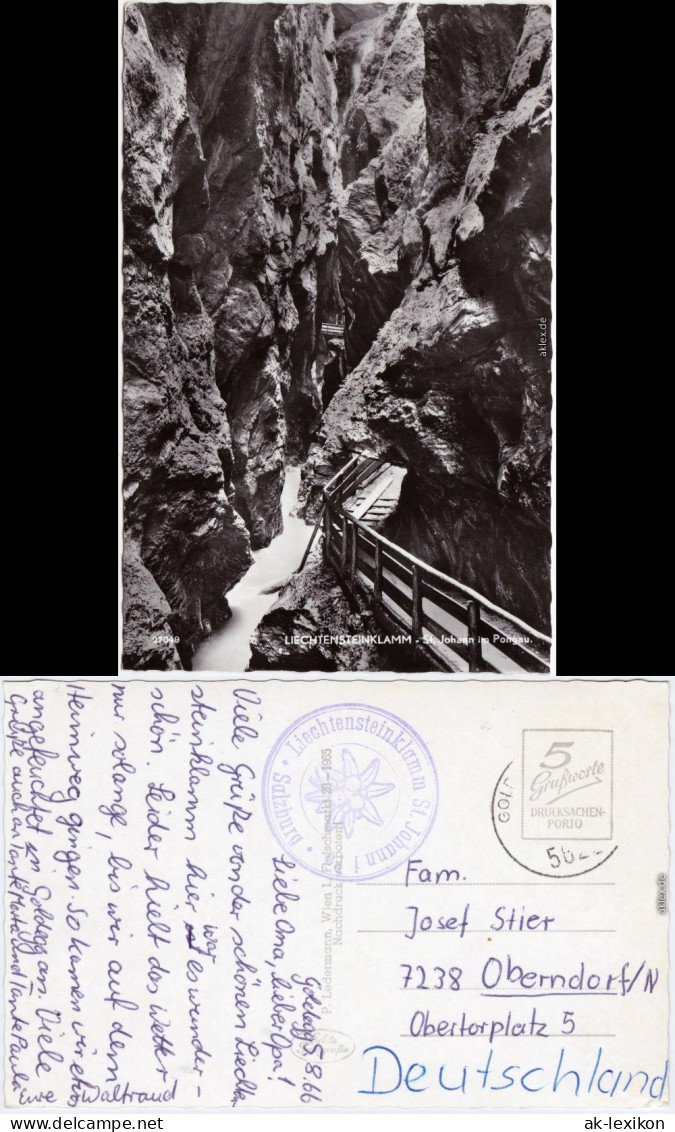 aklex.de
27049
LIECHTENSTEINKLAMM - St. Johann im Pongau.
Goldegg 5.8.66
Liebe Oma, lieber Opa!
Viele Grüße von der schönen Liechten
steinklamm hier war es wunder-
schön. Leider hielt das Wetter
nur solange, bis wir auf dem
Heimweg gingen. So kamen wir etwas
angefeuchtet in Goldegg an. Viele
Grüße auch an Tante Marta und Tante Paula
Eure Waltraud
Liechtensteinklamm St. Johann i
Salzburg
P. Ledermann, Wien I, Fleischmarkt 20 - 1965
Nachdruck verboten!
Echte
5
Grußworte
DRUCKSACHEN-
PORTO
GOL
562
Fam.
Josef Stier
7238 Oberndorf/N
Obertorplatz 5
Deutschland
aklex.de
ak-lexikon